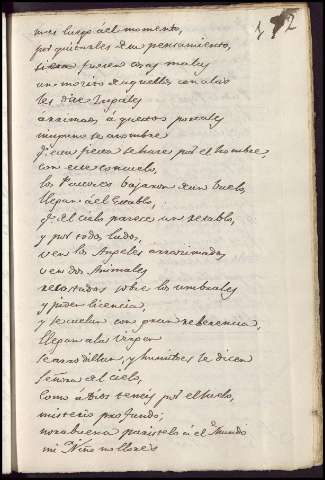 2
mas luego á el momento,
por quitarles de un pensamiento,
fuesen cosas malas
un mozito de aquellos con alas
les dice Zagales
arrimaos á questos portales
ninguno se asombre
q.e una fiera se hace por el hombre,
con ese consuelo,
los Pastores bajaron de un buelo,
llegan á el Establo,
q.e el cielo parece un retablo,
y por todos lados,
ven los Angeles arrimados,
ven dos Animales
recostados sobre los umbrales
y piden licencia,
y se cuelan con gran reberencia,
llegan a la Virgen
se arrodillan, y humildes le dicen
Señora del cielo,
como á Dios teneis por el suelo,
misterio profundo;
norabuena paristeis á el Mundo
mi Niño no llores